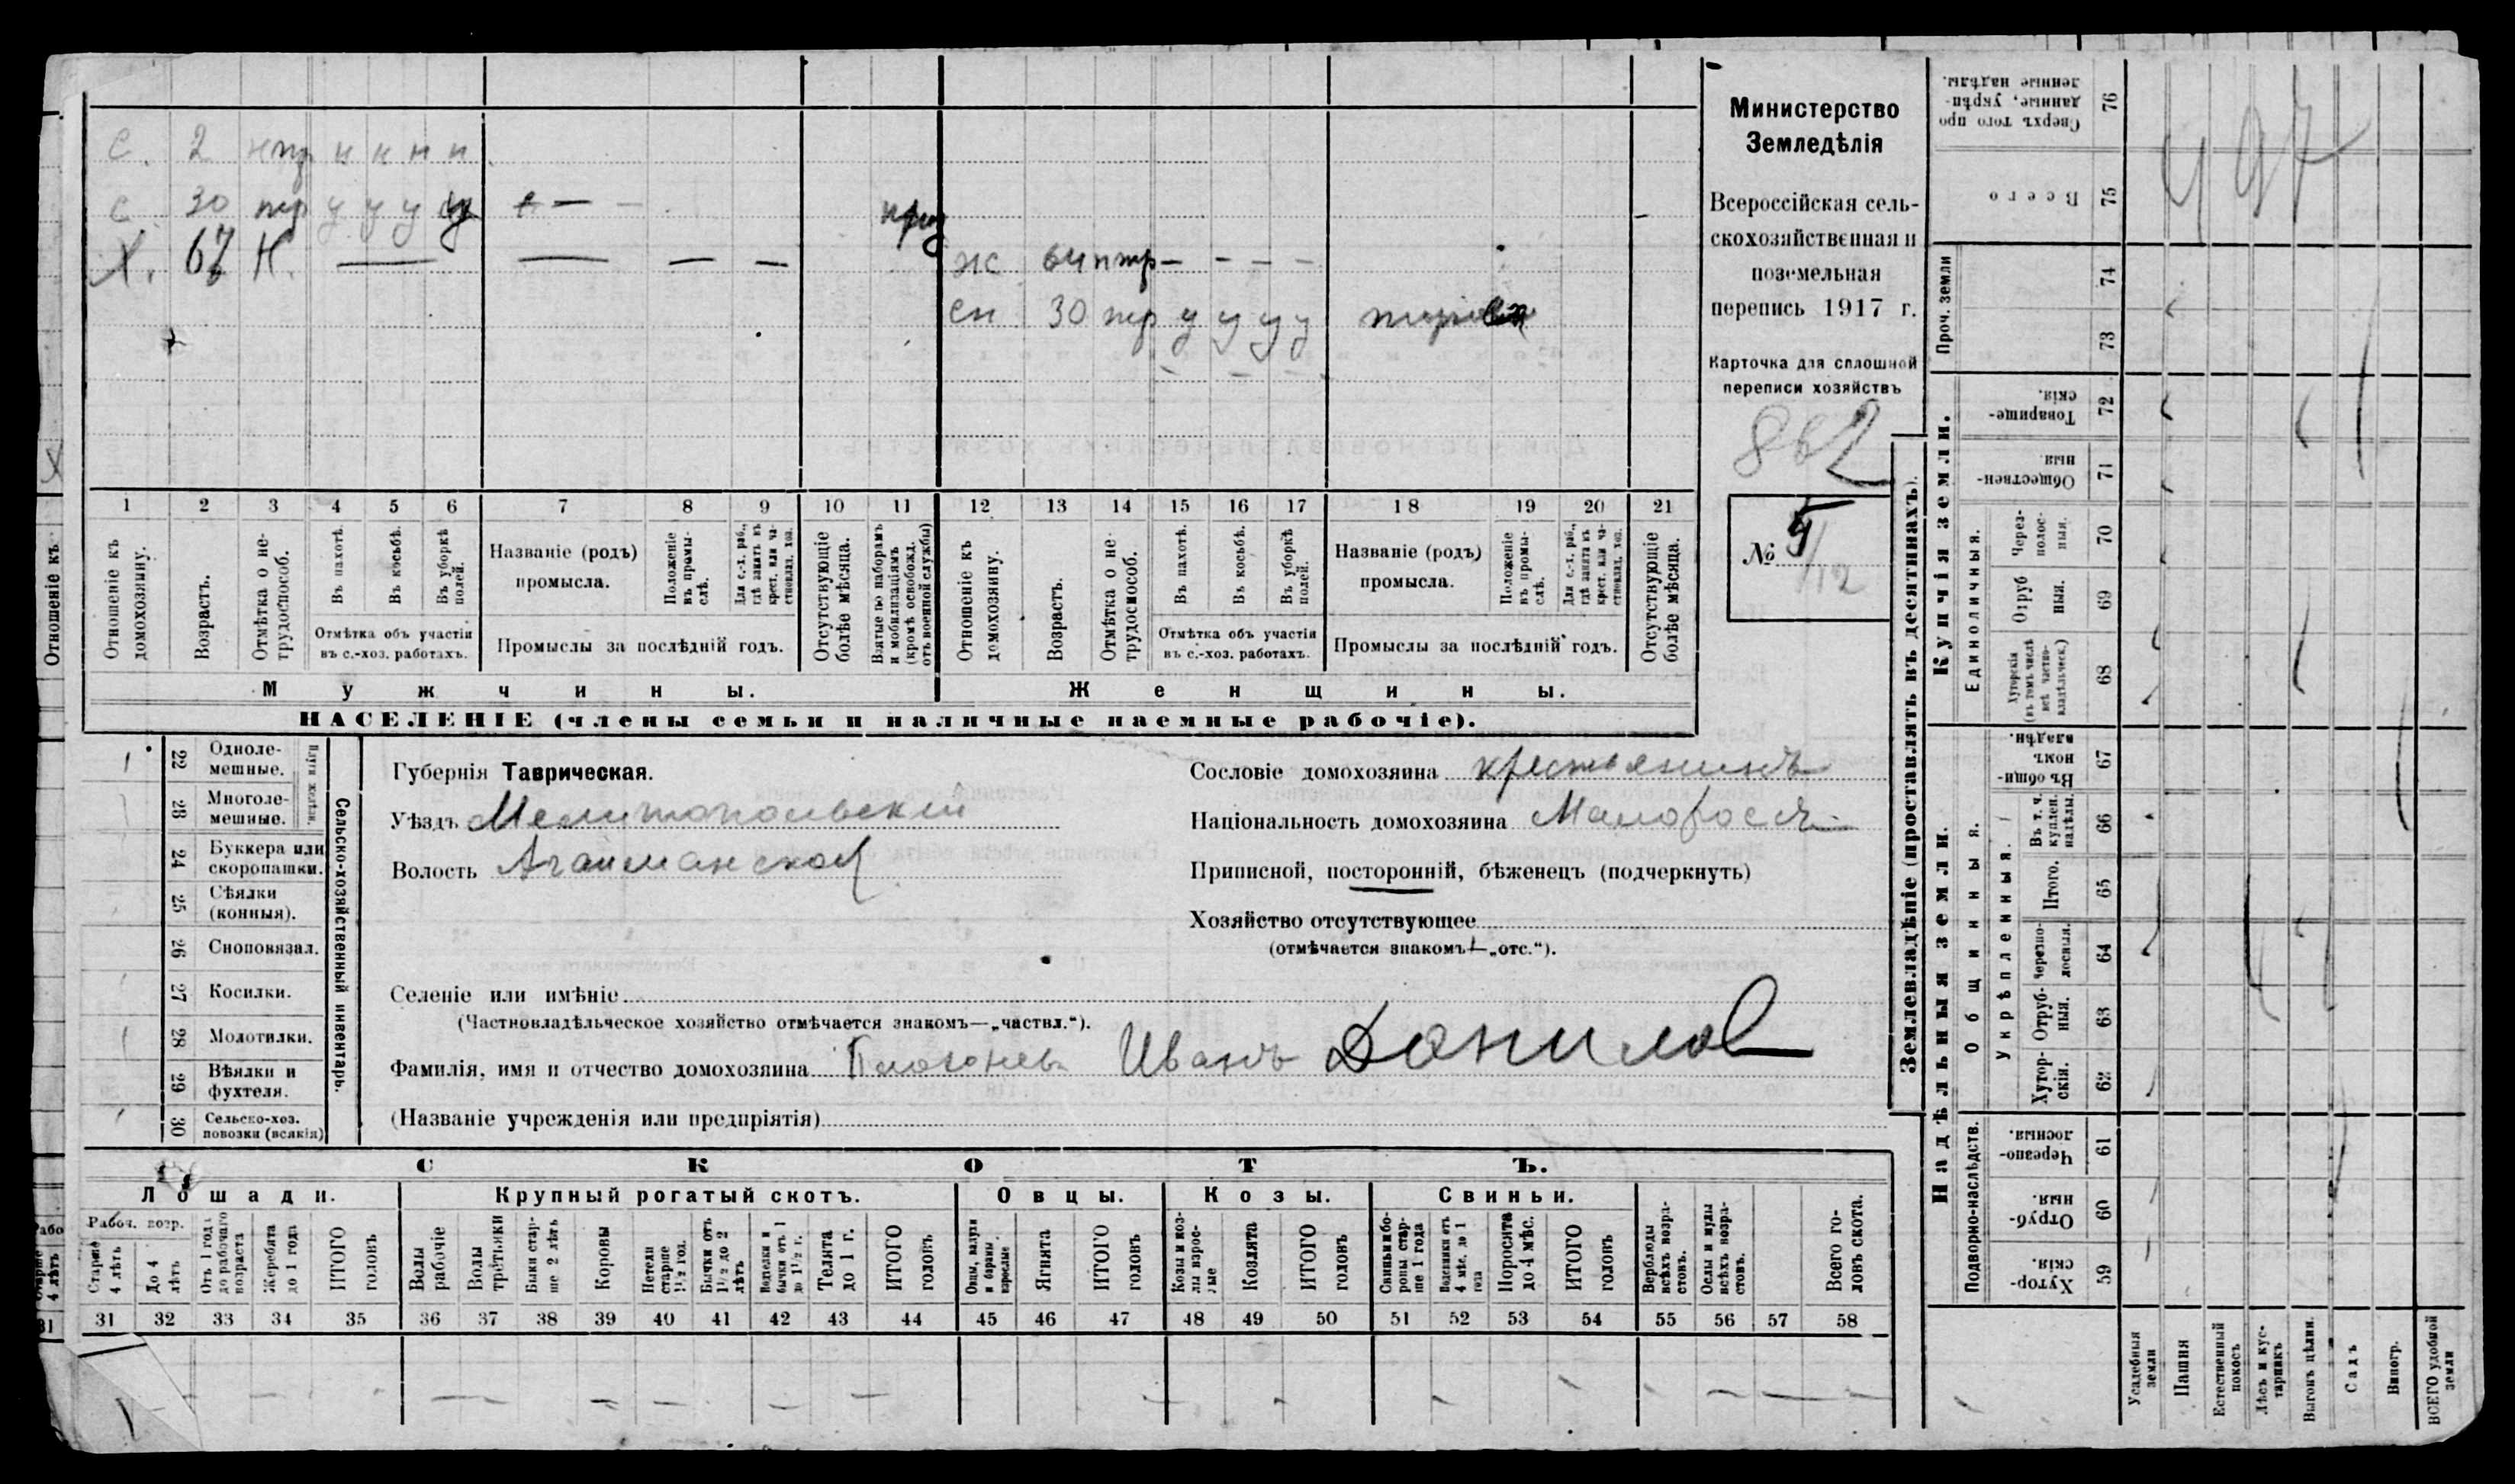 с. 2 нтр н н н н
с 30 тр у у у у
Х. 67 Н.
ж 64 нтр
сн 30 тр у у у у
1 2 3 4 5 6 7 8 9 10 11 12 13 14 15 16 17 18 19 20 21
Отношеніе къ домохозяину.
Возрастъ.
Отмѣтка о нетрудоспособ.
Въ пахотѣ.
Въ косьбѣ.
Въ уборкѣ полей.
Отмѣтка объ участіи
въ с.-хоз. работахъ.
Названіе (родъ)
промысла.
Положеніе въ промыслѣ.
Для с.-х. раб., гдѣ занятъ въ крест. или частновлад. хоз.
Промыслы за послѣдній годъ.
Отсутствующіе болѣе мѣсяца.
Взятые по наборамъ и мобилизаціямъ (кромѣ освобожд. отъ военной службы)
Отношеніе къ домохозяину.
Возрастъ.
Отмѣтка о нетрудоспособ.
Въ пахотѣ.
Въ косьбѣ.
Въ уборкѣ полей.
Отмѣтка объ участіи
въ с.-хоз. работахъ.
Названіе (родъ)
промысла.
Положеніе въ промыслѣ.
Для с.-х. раб., гдѣ занята въ крест. или частновлад. хоз.
Промыслы за послѣдній годъ.
Отсутствующіе болѣе мѣсяца.
Мужчины. Женщины.
НАСЕЛЕНІЕ (члены семьи и наличные наемные рабочіе).
Министерство
Земледѣлія
Всероссійская сель-
скохозяйственная и
поземельная
перепись 1917 г.
Карточка для сплошной
переписи хозяйствъ
862
№ 5
/12
Отношеніе къ
Х
22 Одноле-
мешные.
23 Многоле-
мешные.
Плуги желѣзн.
24 Буккера или
скоропашки.
25 Сѣялки
(конныя).
26 Сноповязал.
27 Косилки.
28 Молотилки.
29 Вѣялки и
фухтеля.
30 Сельско-хоз.
повозки (всякія)
Сельско-хозяйственный инвентарь.
Губернія Таврическая.
Уѣздъ Мелитопольский
Волость Агайманской
Сословіе домохозяина крестьянинъ
Національность домохозяина Малоросъ
Приписной, посторонній, бѣженецъ (подчеркнуть)
Хозяйство отсутствующее
(отмѣчается знакомъ—„отс.“).
Селеніе или имѣніе
(Частновладѣльческое хозяйство отмѣчается знакомъ—„частвл.“).
Фамилія, имя и отчество домохозяина Иванъ Данилов
(Названіе учрежденія или предпріятія)
СКОТЪ.
Лошади. Крупный рогатый скотъ. Овцы. Козы. Свиньи.
Рабоч. возр.
Старше 4 лѣтъ
До 4 лѣтъ
Отъ 1 года до рабочаго возраста
Жеребята до 1 года
ИТОГО головъ
Волы рабочіе
Волы третьяки
Быки старше 2 лѣтъ
Коровы
Нетели старше 1½ год.
Бычки отъ 1½ до 2 лѣтъ
Подтелки и бычки отъ 1 до 1½ г.
Телята до 1 г.
ИТОГО головъ
Овцы, валухи и бараны взрослые
Ягнята
ИТОГО головъ
Козы и козлы взрослые
Козлята
ИТОГО головъ
Свиньи и бороны старше 1 года
Подсвинки отъ 4 мѣс. до 1 года
Поросята до 4 мѣс.
ИТОГО головъ
Верблюды всѣхъ возрастовъ.
Ослы и мулы всѣхъ возрастовъ.
Всего головъ скота.
31 32 33 34 35 36 37 38 39 40 41 42 43 44 45 46 47 48 49 50 51 52 53 54 55 56 57 58
Землевладѣніе (проставлять въ десятинахъ).
Купчія земли.
Надѣльныя земли.
76 Сверхъ того про
данные, укрѣп-
ленные надѣлы.
75 Всего
Проч. земли
74
73
72 Товарище-
скія.
71 Обществен-
ныя.
Единоличныя.
70 Через-
полос-
ныя.
69 Отруб
ныя.
68 Хуторскія
(въ томъ числѣ
всѣ частно-
владѣльческ.)
Общинныя.
67 Въ общин
номъ
владѣн.
Укрѣпленныя.
66 Въ т. ч.
куплен.
надѣлы.
65 Итого.
64 Черезпо-
лосныя.
63 Отруб-
ныя.
62 Хутор-
скія.
Подворно-наслѣдств.
61 Черезпо-
лосныя.
60 Отруб-
ныя.
59 Хутор-
скія.
Усадебныя земли
Пашня
Естественный покосъ
Лѣсъ и кустарникъ
Выгонъ цѣлин.
Садъ
Виногр.
ВСЕГО удобной земли
497